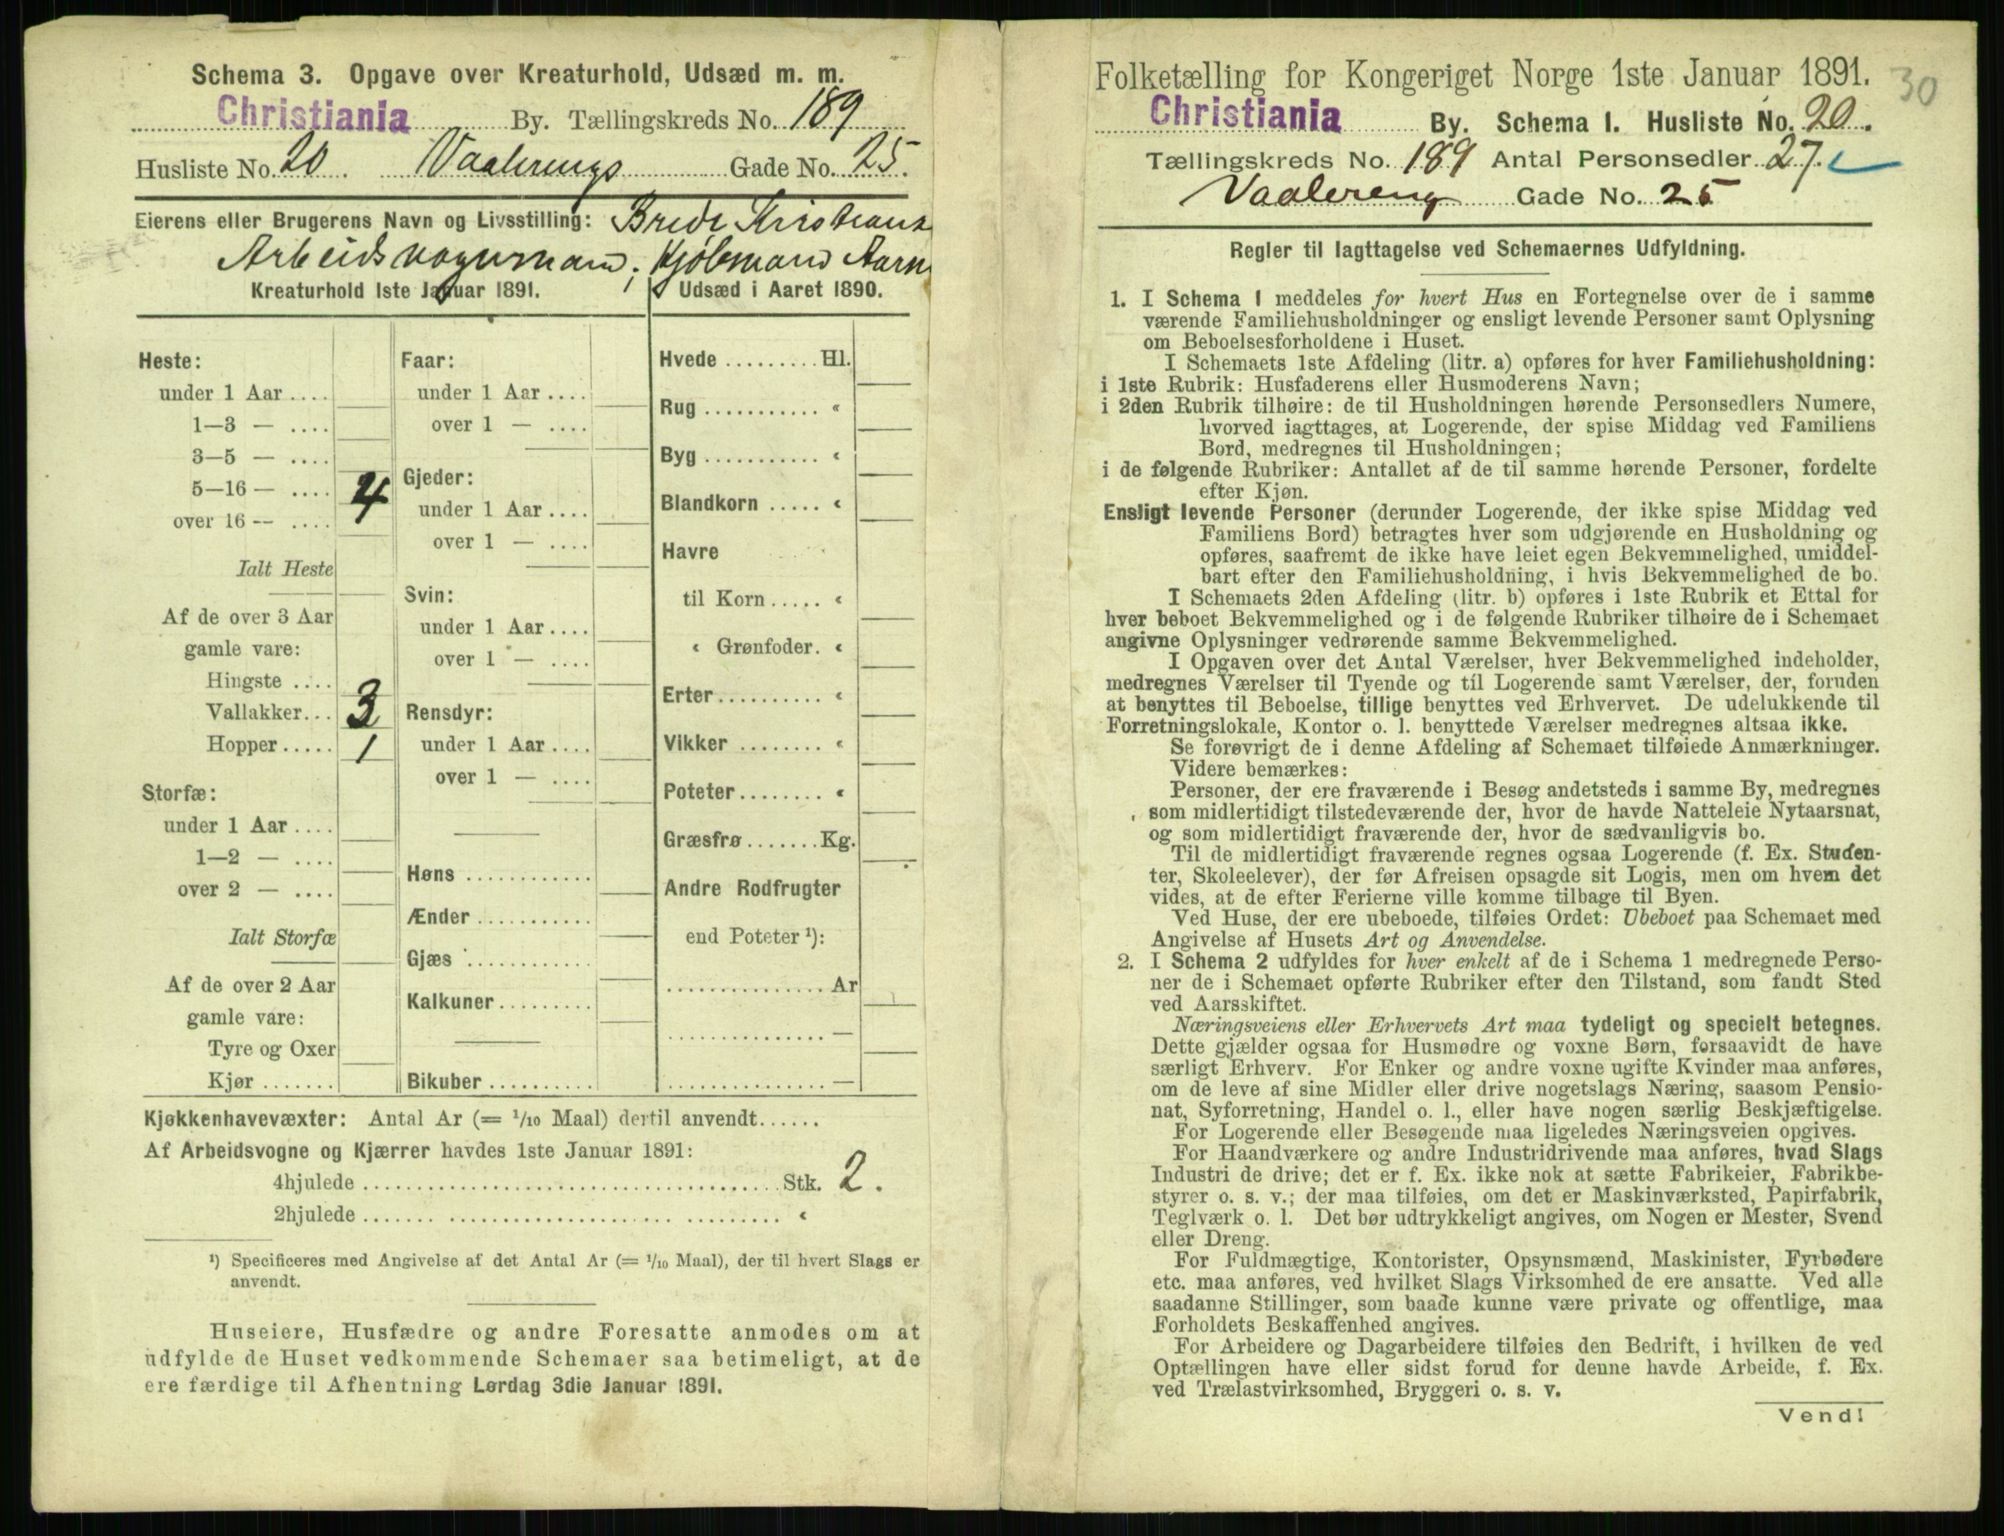 Schema 3. Opgave over Kreaturhold, Udsæd m. m.
Christiania By. Tællingskreds No. 189
Husliste No. 20. Vaalerengs Gade No. 25.
Eierens eller Brugerens Navn og Livsstilling: Brede Kristians
Arbeidsvognmand; Kjøbmand Aarn
Kreaturhold 1ste Januar 1891.
Heste:
under 1 Aar ....
1—3 — ....
3—5 — ....
5—16 — .... 4
over 16 — ....
Ialt Heste
Af de over 3 Aar
gamle vare:
Hingste ....
Vallakker... 3
Hopper..... 1
Storfæ:
under 1 Aar ....
1—2 — ....
over 2 — ....
Ialt Storfæ
Af de over 2 Aar
gamle vare:
Tyre og Oxer
Kjør .......
Faar:
under 1 Aar ....
over 1 — ....
Gjeder:
under 1 Aar ....
over 1 — ....
Svin:
under 1 Aar ....
over 1 — ....
Rensdyr:
under 1 Aar ....
over 1 — ....
Høns ............
Ænder ...........
Gjæs ............
Kalkuner.........
Bikuber ..........
Udsæd i Aaret 1890.
Hvede ......... Hl.
Rug ........... «
Byg ........... «
Blandkorn ..... «
Havre
til Korn ..... «
« Grønfoder. «
Erter.......... «
Vikker ........ «
Poteter ........ «
Græsfrø ....... Kg.
Andre Rodfrugter
end Poteter ¹):
............... Ar
............... —
............... —
Kjøkkenhavevæxter: Antal Ar (= 1/10 Maal) dertil anvendt......
Af Arbeidsvogne og Kjærrer havdes 1ste Januar 1891:
4hjulede ........................................ Stk. 2.
2hjulede ........................................ «
¹) Specificeres med Angivelse af det Antal Ar (= 1/10 Maal), der til hvert Slags er
anvendt.
Huseiere, Husfædre og andre Foresatte anmodes om at
udfylde de Huset vedkommende Schemaer saa betimeligt, at de
ere færdige til Afhentning Lørdag 3die Januar 1891.
Folketælling for Kongeriget Norge 1ste Januar 1891. 30
Christiania By. Schema 1. Husliste No. 20.
Tællingskreds No. 189 Antal Personsedler 27.
Vaalereng Gade No. 25
Regler til Iagttagelse ved Schemaernes Udfyldning.
1. I Schema 1 meddeles for hvert Hus en Fortegnelse over de i samme
værende Familiehusholdninger og ensligt levende Personer samt Oplysning
om Beboelsesforholdene i Huset.
I Schemaets 1ste Afdeling (litr. a) opføres for hver Familiehusholdning:
i 1ste Rubrik: Husfaderens eller Husmoderens Navn;
i 2den Rubrik tilhøire: de til Husholdningen hørende Personsedlers Numere,
hvorved iagttages, at Logerende, der spise Middag ved Familiens
Bord, medregnes til Husholdningen;
i de følgende Rubriker: Antallet af de til samme hørende Personer, fordelte
efter Kjøn.
Ensligt levende Personer (derunder Logerende, der ikke spise Middag ved
Familiens Bord) betragtes hver som udgjørende en Husholdning og
opføres, saafremt de ikke have leiet egen Bekvemmelighed, umiddel-
bart efter den Familiehusholdning, i hvis Bekvemmelighed de bo.
I Schemaets 2den Afdeling (litr. b) opføres i 1ste Rubrik et Ettal for
hver beboet Bekvemmelighed og i de følgende Rubriker tilhøire de i Schemaet
angivne Oplysninger vedrørende samme Bekvemmelighed.
I Opgaven over det Antal Værelser, hver Bekvemmelighed indeholder,
medregnes Værelser til Tyende og til Logerende samt Værelser, der, foruden
at benyttes til Beboelse, tillige benyttes ved Erhvervet. De udelukkende til
Forretningslokale, Kontor o. l. benyttede Værelser medregnes altsaa ikke.
Se forøvrigt de i denne Afdeling af Schemaet tilføiede Anmærkninger.
Videre bemærkes:
Personer, der ere fraværende i Besøg andetsteds i samme By, medregnes
som midlertidigt tilstedeværende der, hvor de havde Natteleie Nytaarsnat,
og som midlertidigt fraværende der, hvor de sædvanligvis bo.
Til de midlertidigt fraværende regnes ogsaa Logerende (f. Ex. Studen-
ter, Skoleelever), der før Afreisen opsagde sit Logis, men om hvem det
vides, at de efter Ferierne ville komme tilbage til Byen.
Ved Huse, der ere ubeboede, tilføies Ordet: Ubeboet paa Schemaet med
Angivelse af Husets Art og Anvendelse.
2. I Schema 2 udfyldes for hver enkelt af de i Schema 1 medregnede Perso-
ner de i Schemaet opførte Rubriker efter den Tilstand, som fandt Sted
ved Aarsskiftet.
Næringsveiens eller Erhvervets Art maa tydeligt og specielt betegnes.
Dette gjælder ogsaa for Husmødre og voxne Børn, forsaavidt de have
særligt Erhverv. For Enker og andre voxne ugifte Kvinder maa anføres,
om de leve af sine Midler eller drive nogetslags Næring, saasom Pensio-
nat, Syforretning, Handel o. l., eller have nogen særlig Beskjæftigelse.
For Logerende eller Besøgende maa ligeledes Næringsveien opgives.
For Haandværkere og andre Industridrivende maa anføres, hvad Slags
Industri de drive; det er f. Ex. ikke nok at sætte Fabrikeier, Fabrikbe-
styrer o. s. v.; der maa tilføies, om det er Maskinværksted, Papirfabrik,
Teglværk o. l. Det bør udtrykkeligt angives, om Nogen er Mester, Svend
eller Dreng.
For Fuldmægtige, Kontorister, Opsynsmænd, Maskinister, Fyrbødere
etc. maa anføres, ved hvilket Slags Virksomhed de ere ansatte. Ved alle
saadanne Stillinger, som baade kunne være private og offentlige, maa
Forholdets Beskaffenhed angives.
For Arbeidere og Dagarbeidere tilføies den Bedrift, i hvilken de ved
Optællingen have eller sidst forud for denne havde Arbeide, f. Ex.
ved Trælastvirksomhed, Bryggeri o. s. v.
Vend!